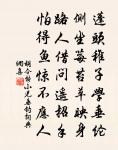 蓬頭稚子學垂綸
側坐莓苔草映身
路人借問遙招手
怕得魚驚不應人
胡令能小兒垂釣